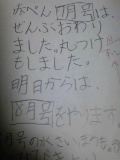 かべん 7月号は、
ぜんぶおわり
ました。丸つけ
もしました。
明日からは、
8月号をやります。
月号の